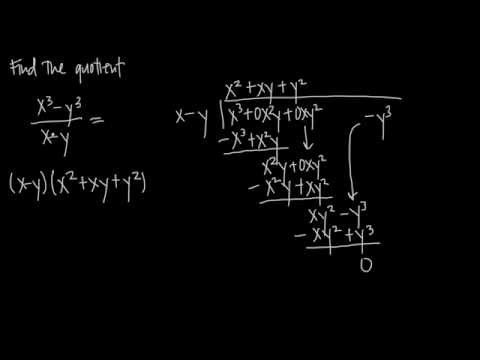 Find the quotient
x³ - y³ / x - y =
(x-y)(x²+xy+y²)
x² + xy + y²
x - y | x³ + 0x²y + 0xy² - y³
- x³ + x²y
x²y + 0xy²
- x²y + xy²
xy² - y³
- xy² + y³
0